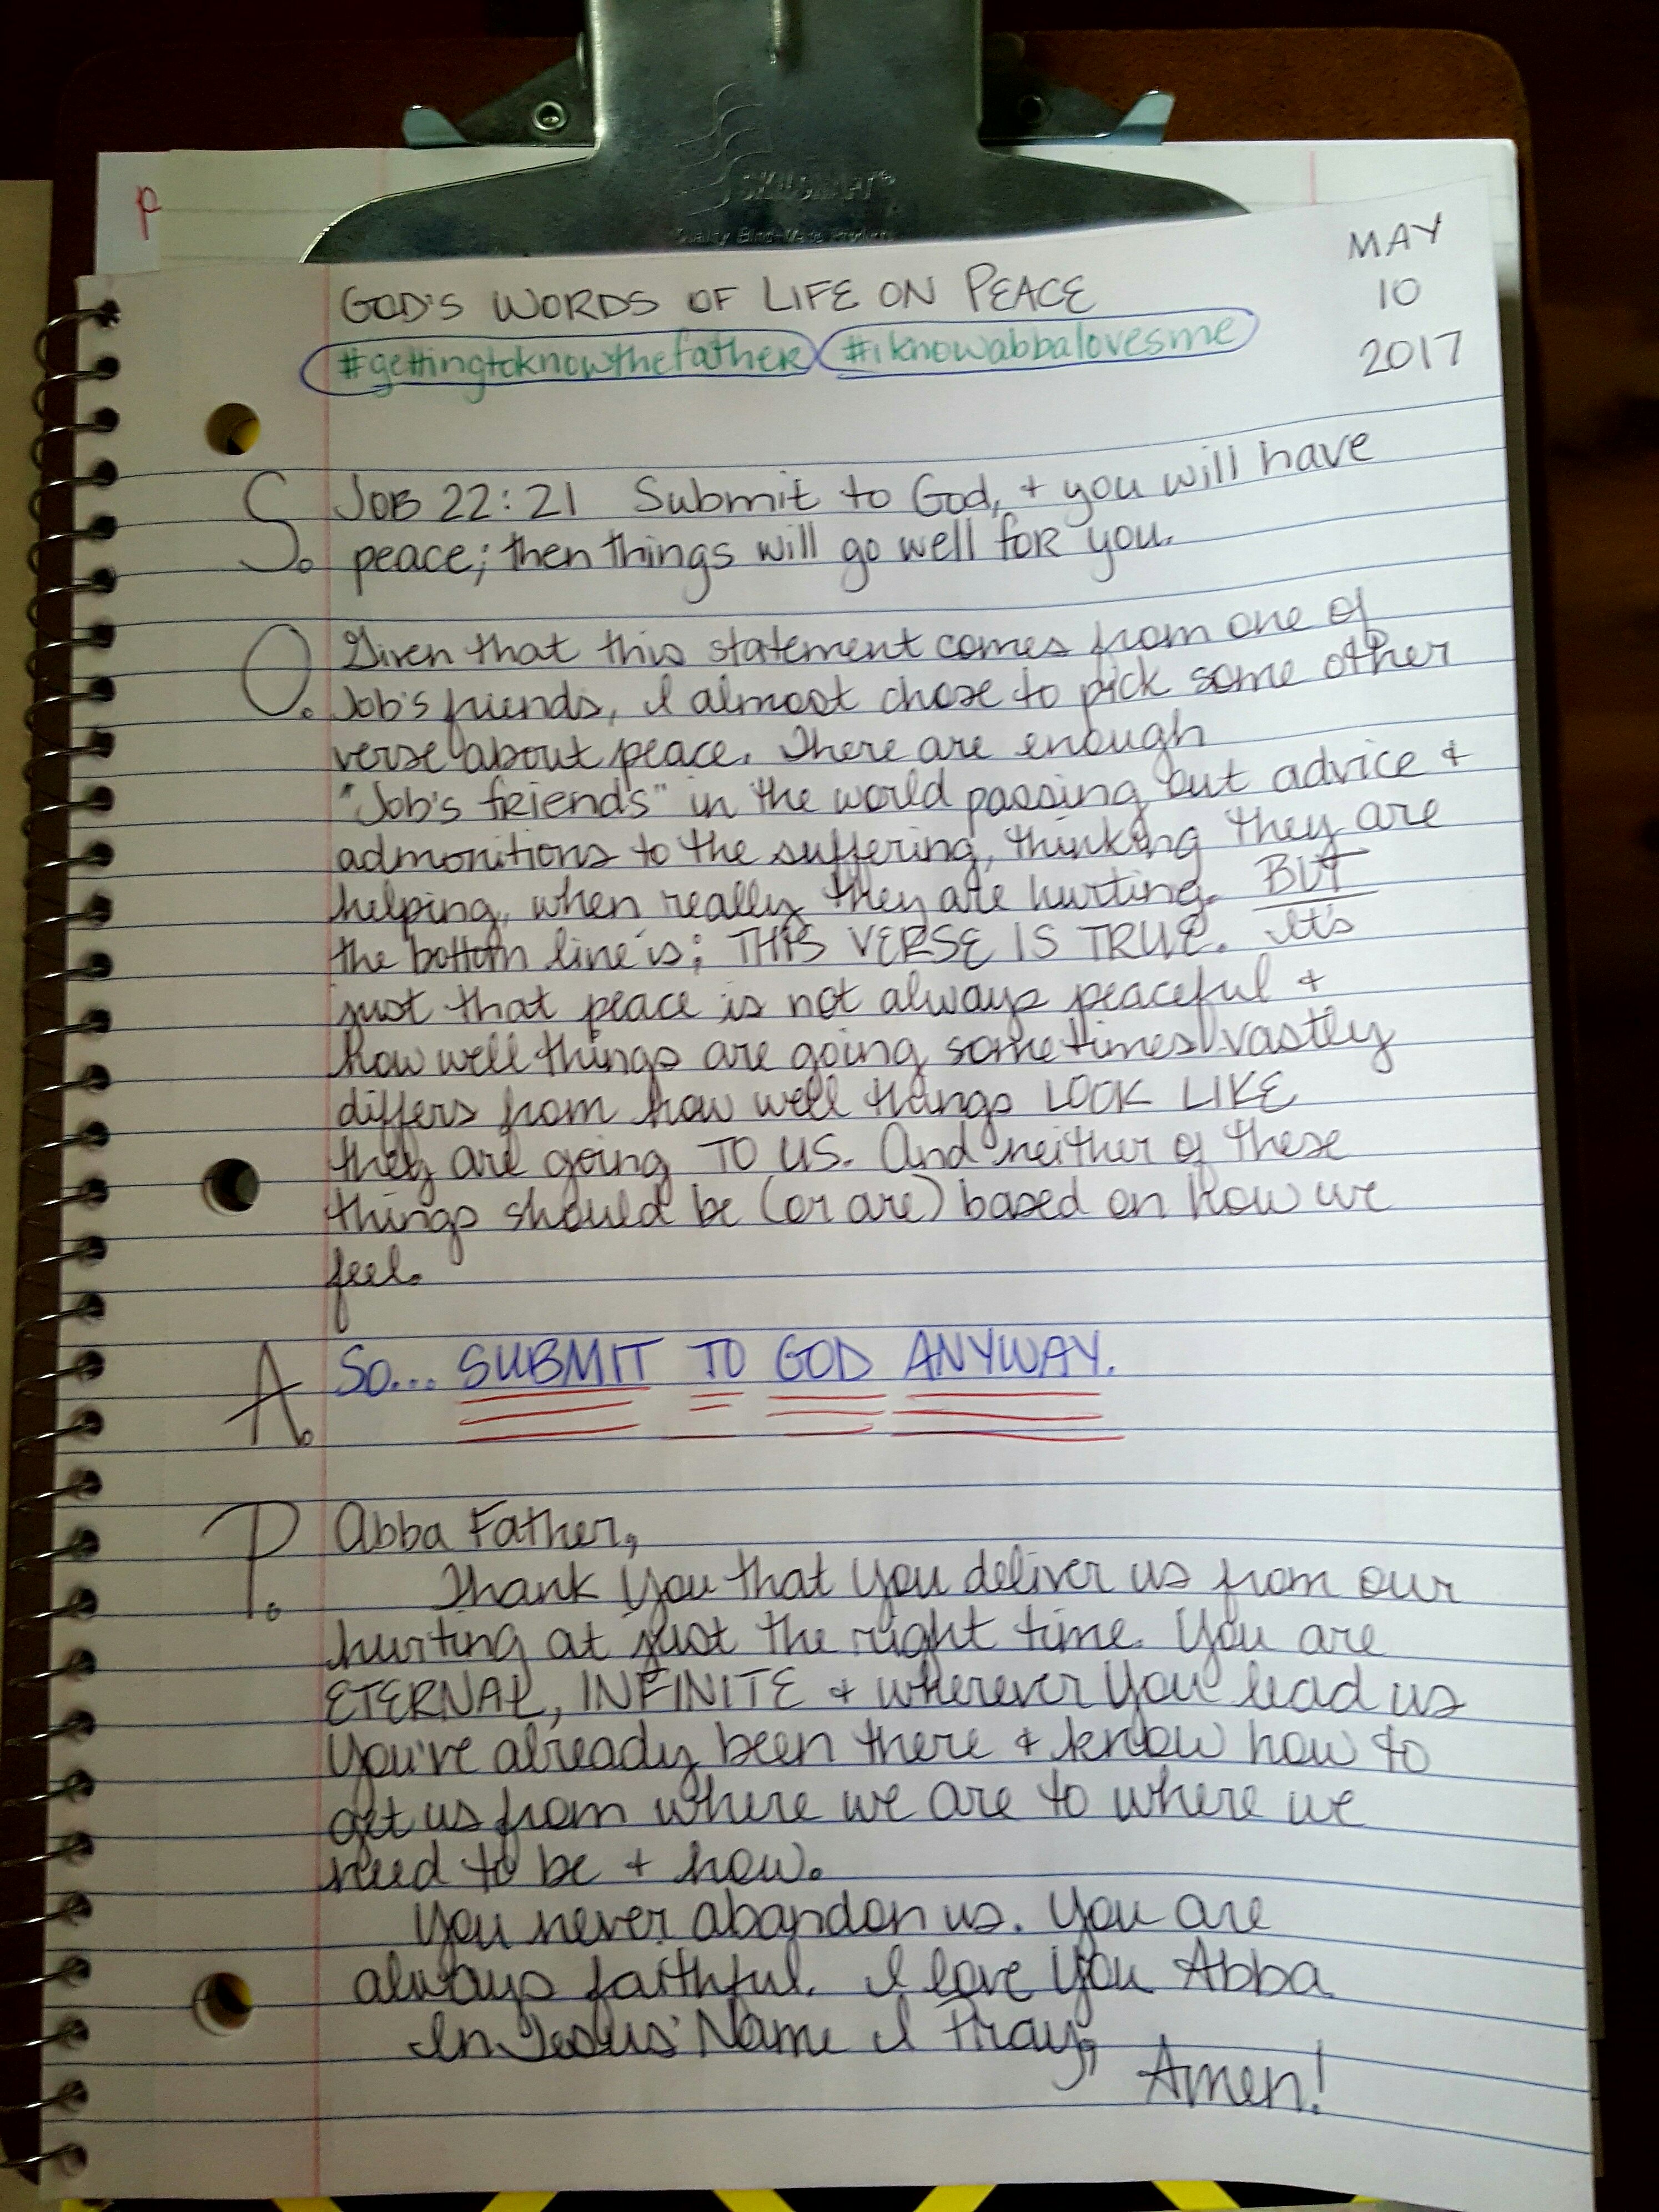 SATURN
P
MAY
10
2017
GOD'S WORDS OF LIFE ON PEACE
#gettingtoknowthefather #iknowabbalovesme
S. JOB 22:21 Submit to God, + you will have
peace; then things will go well for you.
O. Given that this statement comes from one of
Job's friends, I almost chose to pick some other
verse about peace. There are enough
"Job's friends" in the world passing out advice +
admonitions to the suffering, thinking they are
helping, when really they are hurting. BUT
the bottom line is; THIS VERSE IS TRUE. It's
just that peace is not always peaceful +
how well things are going sometimes vastly
differs from how well things LOOK LIKE
they are going TO US. And neither of these
things should be (or are) based on how we
feel.
A. So... SUBMIT TO GOD ANYWAY.
P. Abba Father,
Thank You that You deliver us from our
hurting at just the right time. You are
ETERNAL, INFINITE + wherever You lead us
You've already been there + know how to
get us from where we are to where we
need to be + how.
You never abandon us. You are
always faithful. I love You Abba
In Jesus' Name I Pray,
Amen!